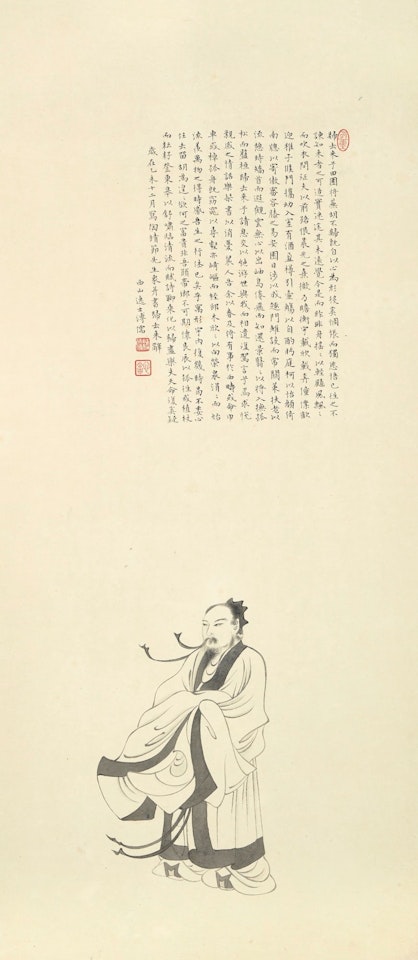 歸去來兮田園將蕪胡不歸既自以心為形役奚惆悵而獨悲悟已往之不
諫知來者之可追實迷途其未遠覺今是而昨非舟搖搖以輕颺風飄飄
而吹衣問征夫以前路恨晨光之熹微乃瞻衡宇載欣載奔僮僕歡
迎稚子候門攜幼入室有酒盈樽引壺觴以自酌眄庭柯以怡顏倚
南牕以寄傲審容膝之易安園日涉以成趣門雖設而常關策扶老以
流憩時矯首而遐觀雲無心以出岫鳥倦飛而知還景翳翳以將入撫孤
松而盤桓歸去來兮請息交以絕游世與我而相遺復駕言兮焉求悅
親戚之情話樂琴書以消憂農人告余以春及將有事於西疇或命巾
車或棹孤舟既窈窕以尋壑亦崎嶇而經邱木欣欣以向榮泉涓涓而始
流羨萬物之得時感吾生之行休已矣乎寓形宇內復幾時曷不委心
任去留胡為遑遑欲何之富貴非吾願帝鄉不可期懷良辰以孤往或植杖
而耘耔登東皋以舒嘯臨清流而賦詩聊乘化以歸盡樂夫天命復奚疑
歲在乙未十二月寫陶靖節先生象并書歸去來辭
西山逸士溥儒